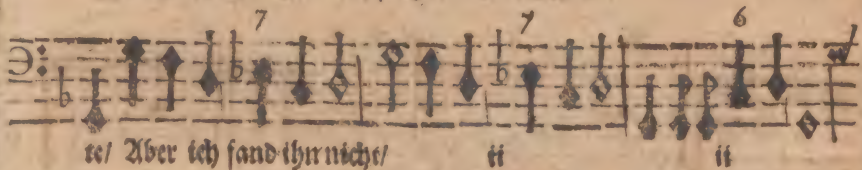 7 7 6
te/ Aber ich fand ihn nicht/ ii ii